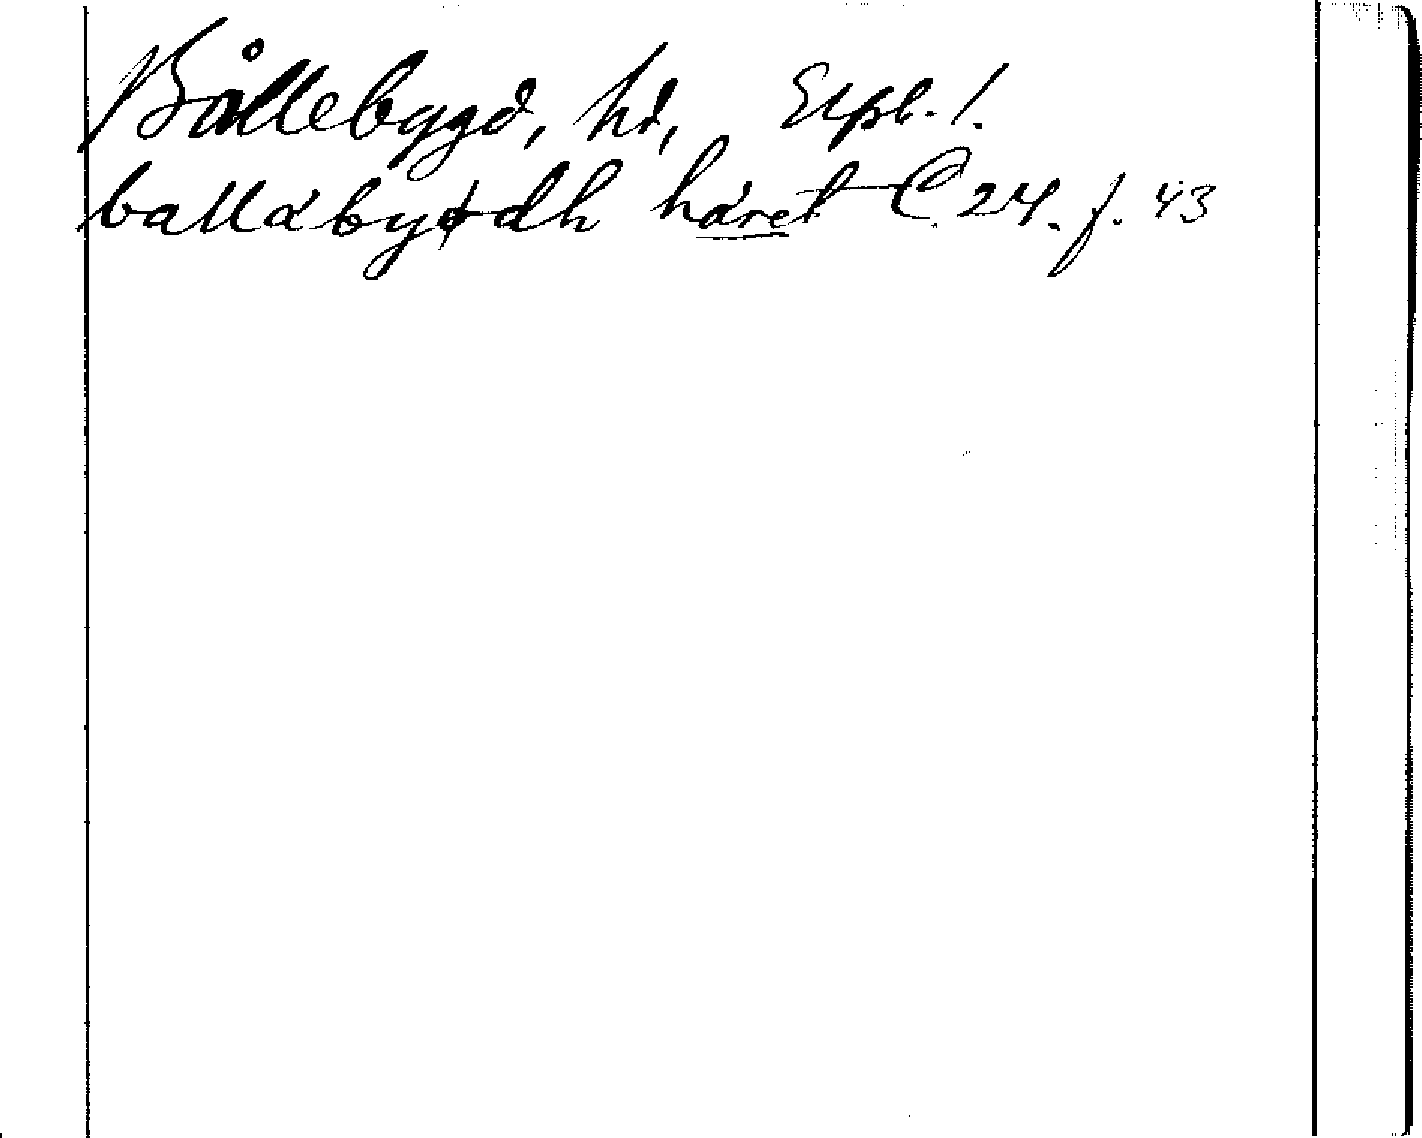 Bållebygd, hd, Elpl. 1.
ballabyødh häret C 24. f. 43